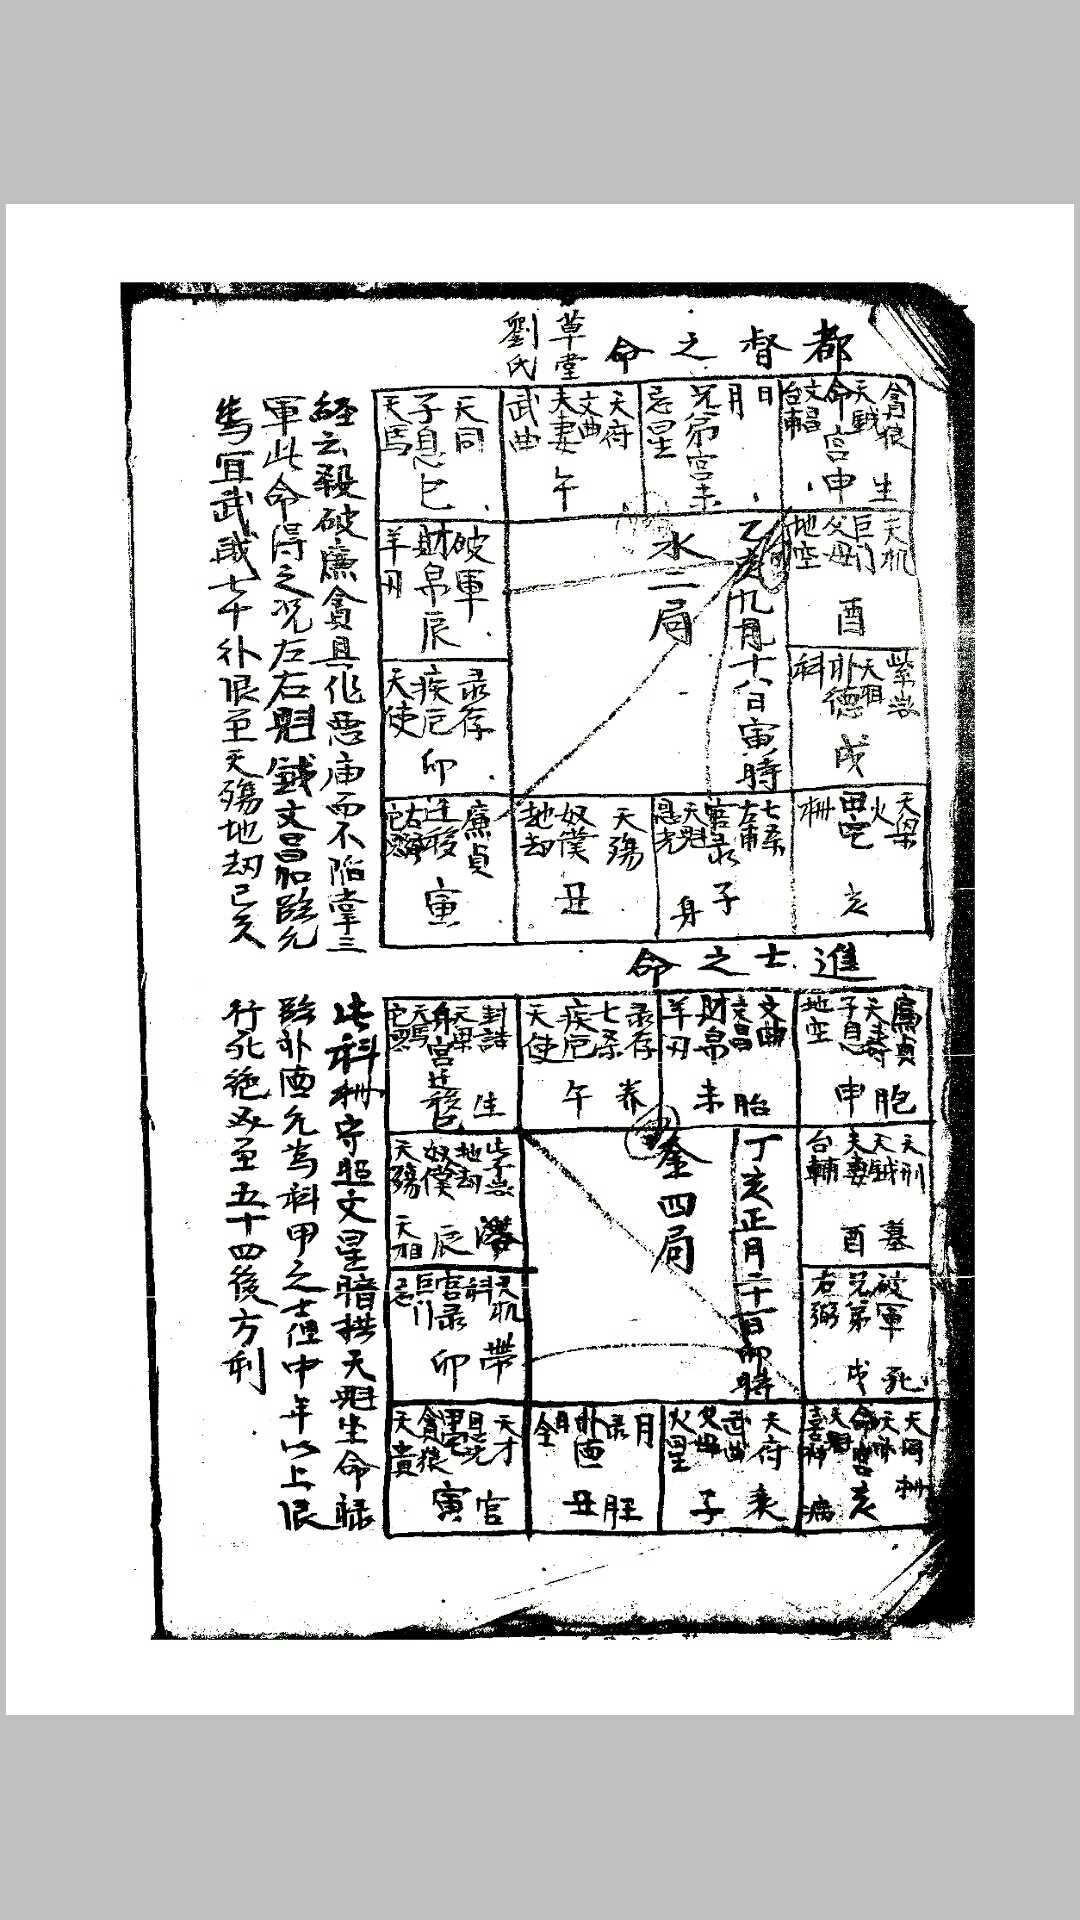 都督之命
草堂
劉氏
貪狼
天鉞
命宮申
文昌
台輔
生
日
月
兄弟宮未
忌星
天府
文曲
夫妻午
武曲
天同
子息巳
天馬
天机
巨门
父母
地空
酉
乙亥九月十八日寅時
水二局
破軍
財帛辰
羊刃
紫微
天相
卟德
科
戌
彔存
疾厄卯
天使
天梁
火
田宅
亥
七杀
左甫
官彔
天魁
恩光
子
身
天殤
奴僕
地劫
丑
廉貞
迁移
寅
経云殺破廉貪具作惡庙而不陷掌三
軍此命得之况左右魁鉞文昌加臨允
為冝武戝七十卟限至天殤地劫已亥
進士之命
廉貞
天壽
子息
地空
申
胞
文曲
文昌
財帛
羊刃
未
胎
彔存
七杀
疾厄
天使
午
养
封誥
天梁
身宮迁移巳
天馬
生
天刑
天鉞
夫妻
台輔
酉
墓
丁亥正月二十一日卯時
金四局
地劫
奴僕
天殤
天相
辰
破軍
兄弟
右弼
戌
死
天机
科
官彔
巨门
忌
卯
帶
天同
命宮
天魁
亥
病
天府
武曲
父母
火星
子
衰
月
彔
卟德
丑
旺
天才
田宅
貪狼
天貴
寅
官
此科权守照文星暗拱天魁坐命祿
臨卟德允為科甲之士但中年以上限
行死絶必至五十四後方利